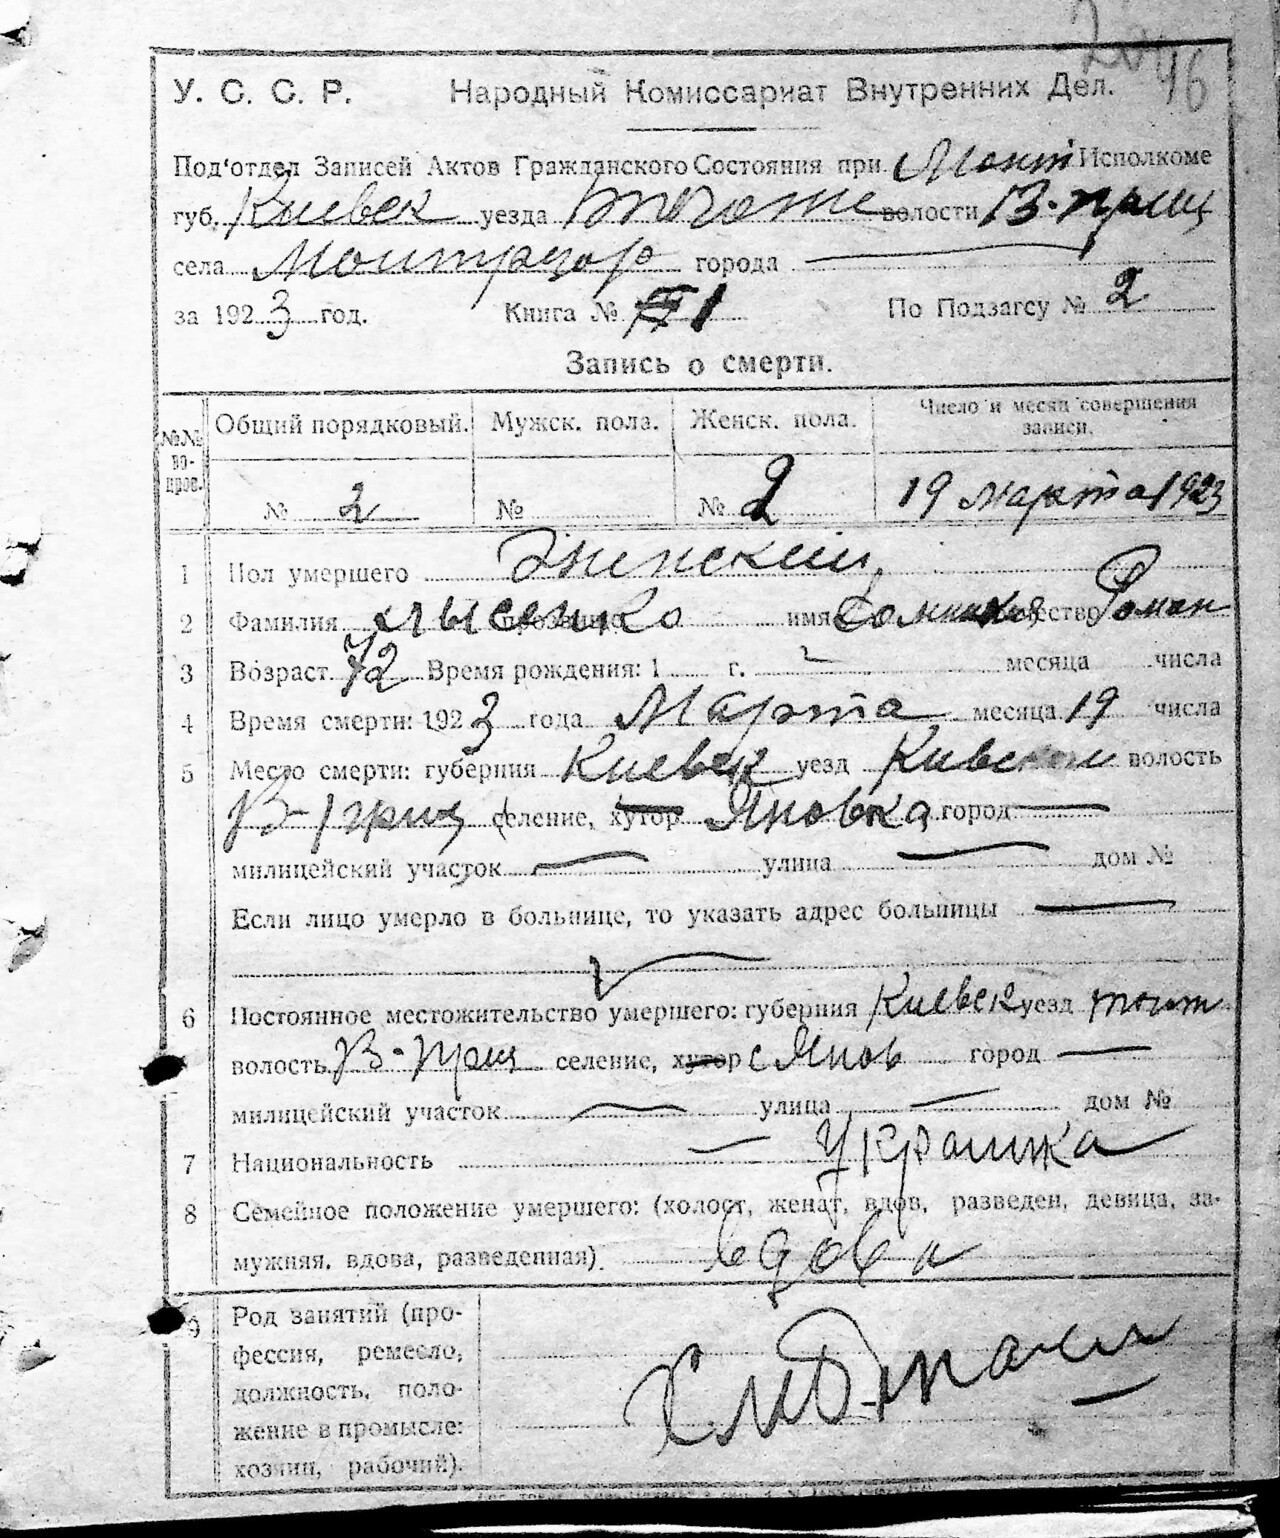 46
У. С. С. Р. Народный Комиссариат Внутренних Дел.
Под'отдел Записей Актов Гражданского Состояния при Монт Исполкоме
губ. Киевск уезда тогоже волости В-приц
села города
за 1923 год. Книга № 1 По Подзагсу № 2
Запись о смерти.
№№ вопров. Общий порядковый. Мужск. пола. Женск. пола. Число и месяц совершения записи.
№ 2 № № 2 19 марта 1923
1 Пол умершего Женский
2 Фамилия Лысенко прозвище имя отчество Роман
3 Возраст 72 Время рождения: 1 г. месяца числа
4 Время смерти: 1923 года Марта месяца 19 числа
5 Место смерти: губерния Киевск уезд волость
В-приц селение, хутор Яновка город
милицейский участок улица дом №
Если лицо умерло в больнице, то указать адрес больницы
6 Постоянное местожительство умершего: губерния Киевск уезд
волость В-приц селение, хутор с Янов город
милицейский участок улица дом №
7 Национальность Украинка
8 Семейное положение умершего: (холост, женат, вдов, разведен, девица, за-
мужняя, вдова, разведенная) вдова
9 Род занятий (про-
фессия, ремесло,
должность, поло-
жение в промысле:
хозяин, рабочий).